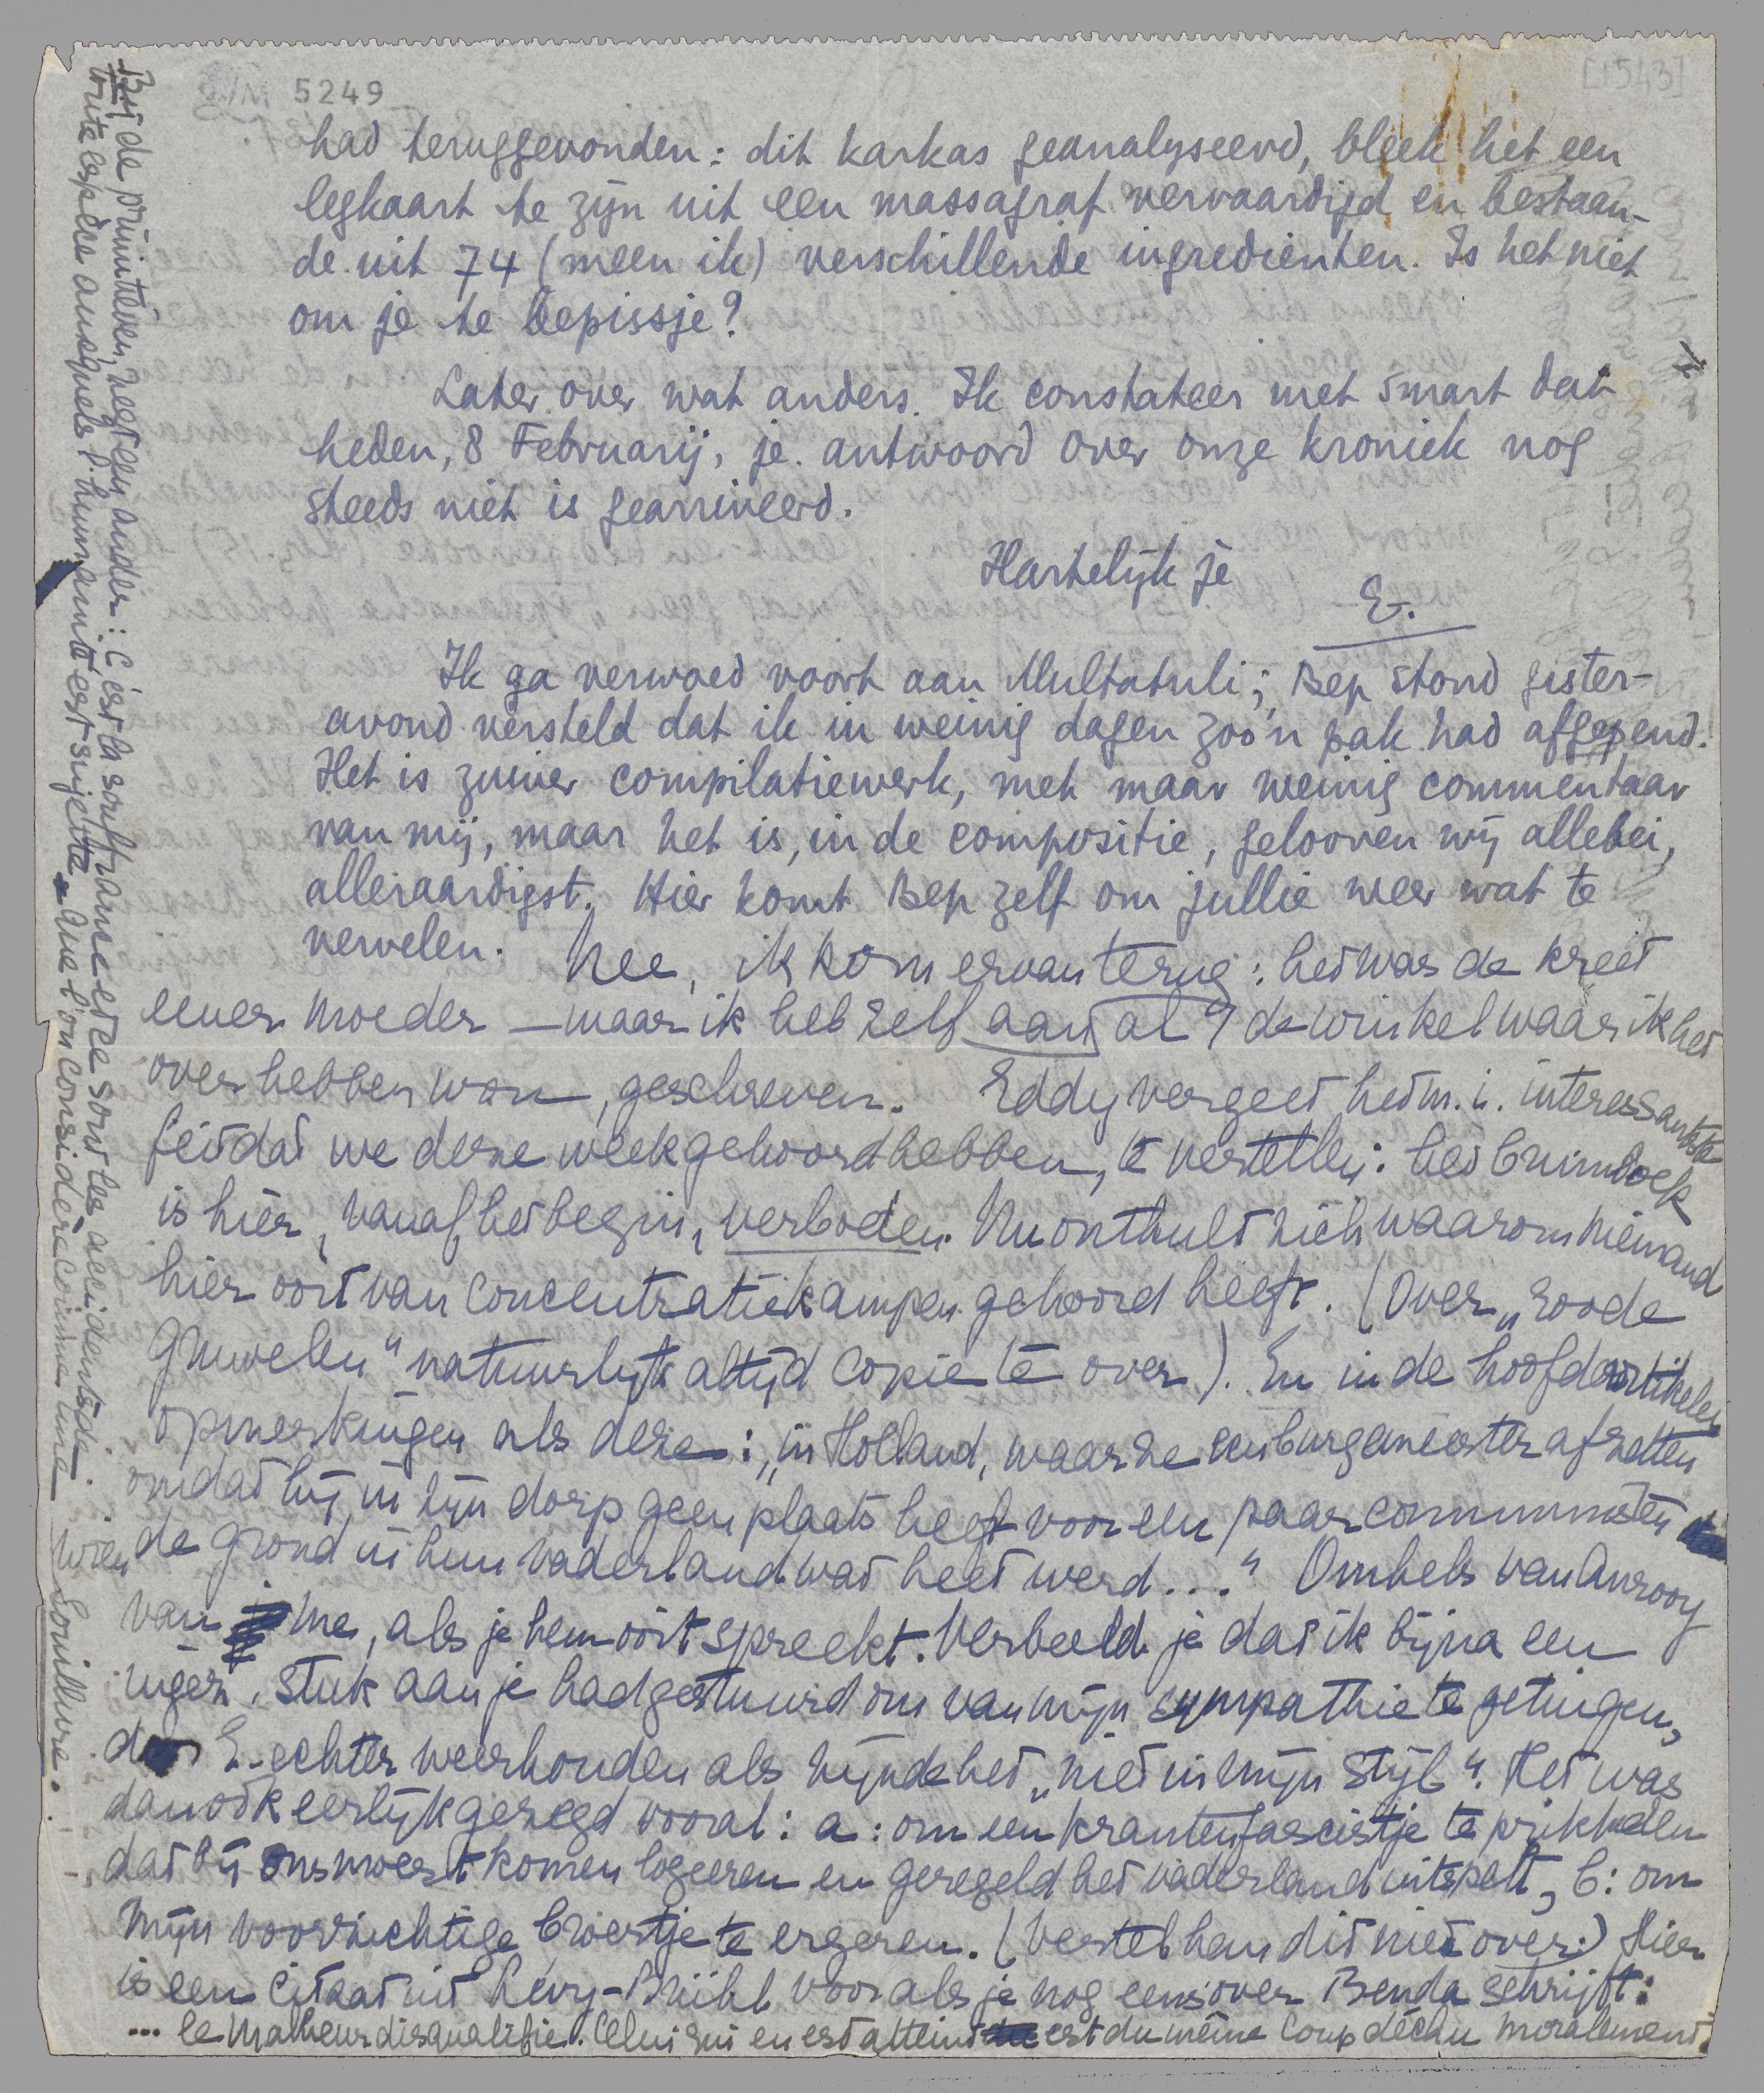 5249
[1543]
had teruggevonden: dit karkas geanalyseerd, bleek het een
legkaart te zijn uit een massagraf vervaardigd en bestaan-
de uit 74 (meen ik) verschillende ingredienten. Is het niet
om je te bepissje?
Later over wat anders. Ik constateer met smart dat
heden, 8 Februarij, je antwoord over onze kroniek nog
steeds niet is gearriveerd.
Hartelijk je
E.
Ik ga verwoed voort aan Multatuli; Bep stond gister-
avond versteld dat ik in weinig dagen zoo'n pak had afgepend.
Het is zuiver compilatiewerk, met maar weinig commentaar
van mij, maar het is, in de compositie, gelooven wij allebei,
alleraardigst. Hier komt Bep zelf om jullie weer wat te
vervelen. Nee, ik kom ervan terug: het was de kreet
eener moeder — maar ik heb zelf aan de winkel waar ik het
over hebben wou, geschreven. Eddy vergeet het m.i. interessantste
feit dat we deze week gehoord hebben, te vertellen: het bruinboek
is hier, vanaf het begin, verboden. Nu onthult zich waarom niemand
hier ooit van concentratiekampen gehoord heeft. (Over „roode
gruwelen" natuurlijk altijd copie te over). En in de hoofdartikelen
opmerkingen als deze: „in Holland, waar ze een burgemeester afzetten
omdat hij in zijn dorp geen plaats heeft voor een paar communisten
wien de grond in hun vaderland wat heet werd..." Omhels van Anrooy
van me, als je hem ooit spreekt. Verbeeld je dat ik bijna een
ingez. stuk aan je had gestuurd om van mijn sympathie te getuigen,
door E. echter weerhouden als zijnde het „niet in mijn stijl". Het was
dan ook eerlijk gezegd vooral: a: om een krantenfascistje te prikkelen
dat bij ons moest komen logeeren en geregeld het vaderland uitspelt, b: om
mijn voorzichtige broertje te ergeren. (Vertel hem dit niet over.) Hier
is een citaat uit Lévy-Brühl voor als je nog eens over Benda schrijft:
... le malheur disqualifie. Celui qui en est atteint est du même coup déchu moralement.
Bij de primitieven, zegt een ander: C'est la souffrance et ce sont les accidents de
toute espèce auxquels l'humanité est sujette que l'on considère comme une souillure.